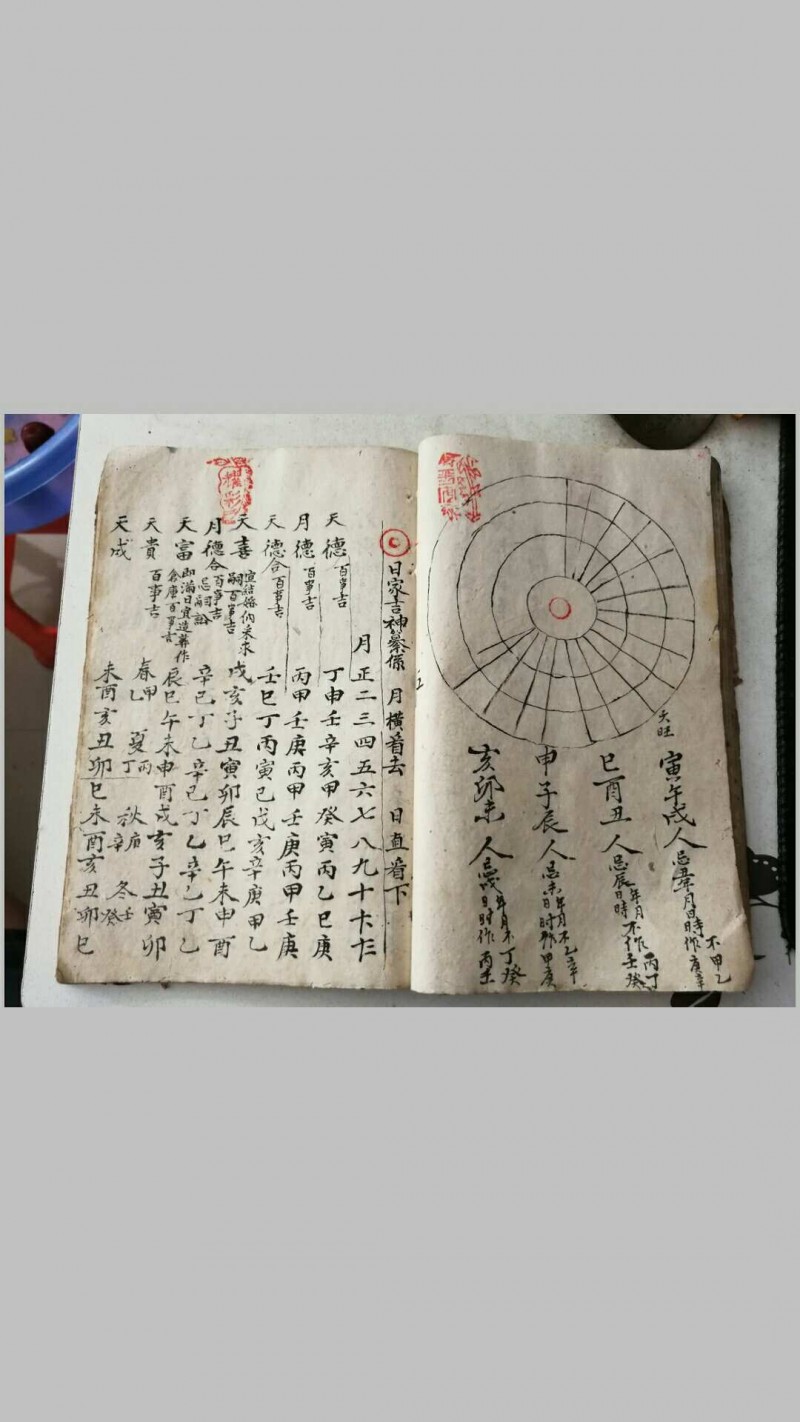 天旺
寅午戌人
不甲乙
庚辛
巳酉丑人
忌辰年月日時
不作丙丁壬癸
申子辰人
忌未年月日時
不作乙辛甲庚
亥卯未人
忌戌年月日時
不作丁癸丙壬
日家吉神繫係 月橫看去 日直看下
月正二三四五六七八九十十一十二
天德 百事吉 丁申壬辛亥甲癸寅丙乙巳庚
月德 百事吉 丙甲壬庚丙甲壬庚丙甲壬庚
天德合 百事吉 壬巳丁丙寅己戊亥辛庚甲乙
天喜 宜結婚納采求嗣百事吉 戌亥子丑寅卯辰巳午未申酉
月德合 百事吉 辛己丁乙辛己丁乙辛己丁乙
天富 即滿日宜造葬作倉庫百事吉 辰巳午未申酉戌亥子丑寅卯
天貴 百事吉 春甲乙 夏丙丁 秋庚辛 冬壬癸
天成 未酉亥丑卯巳未酉亥丑卯巳